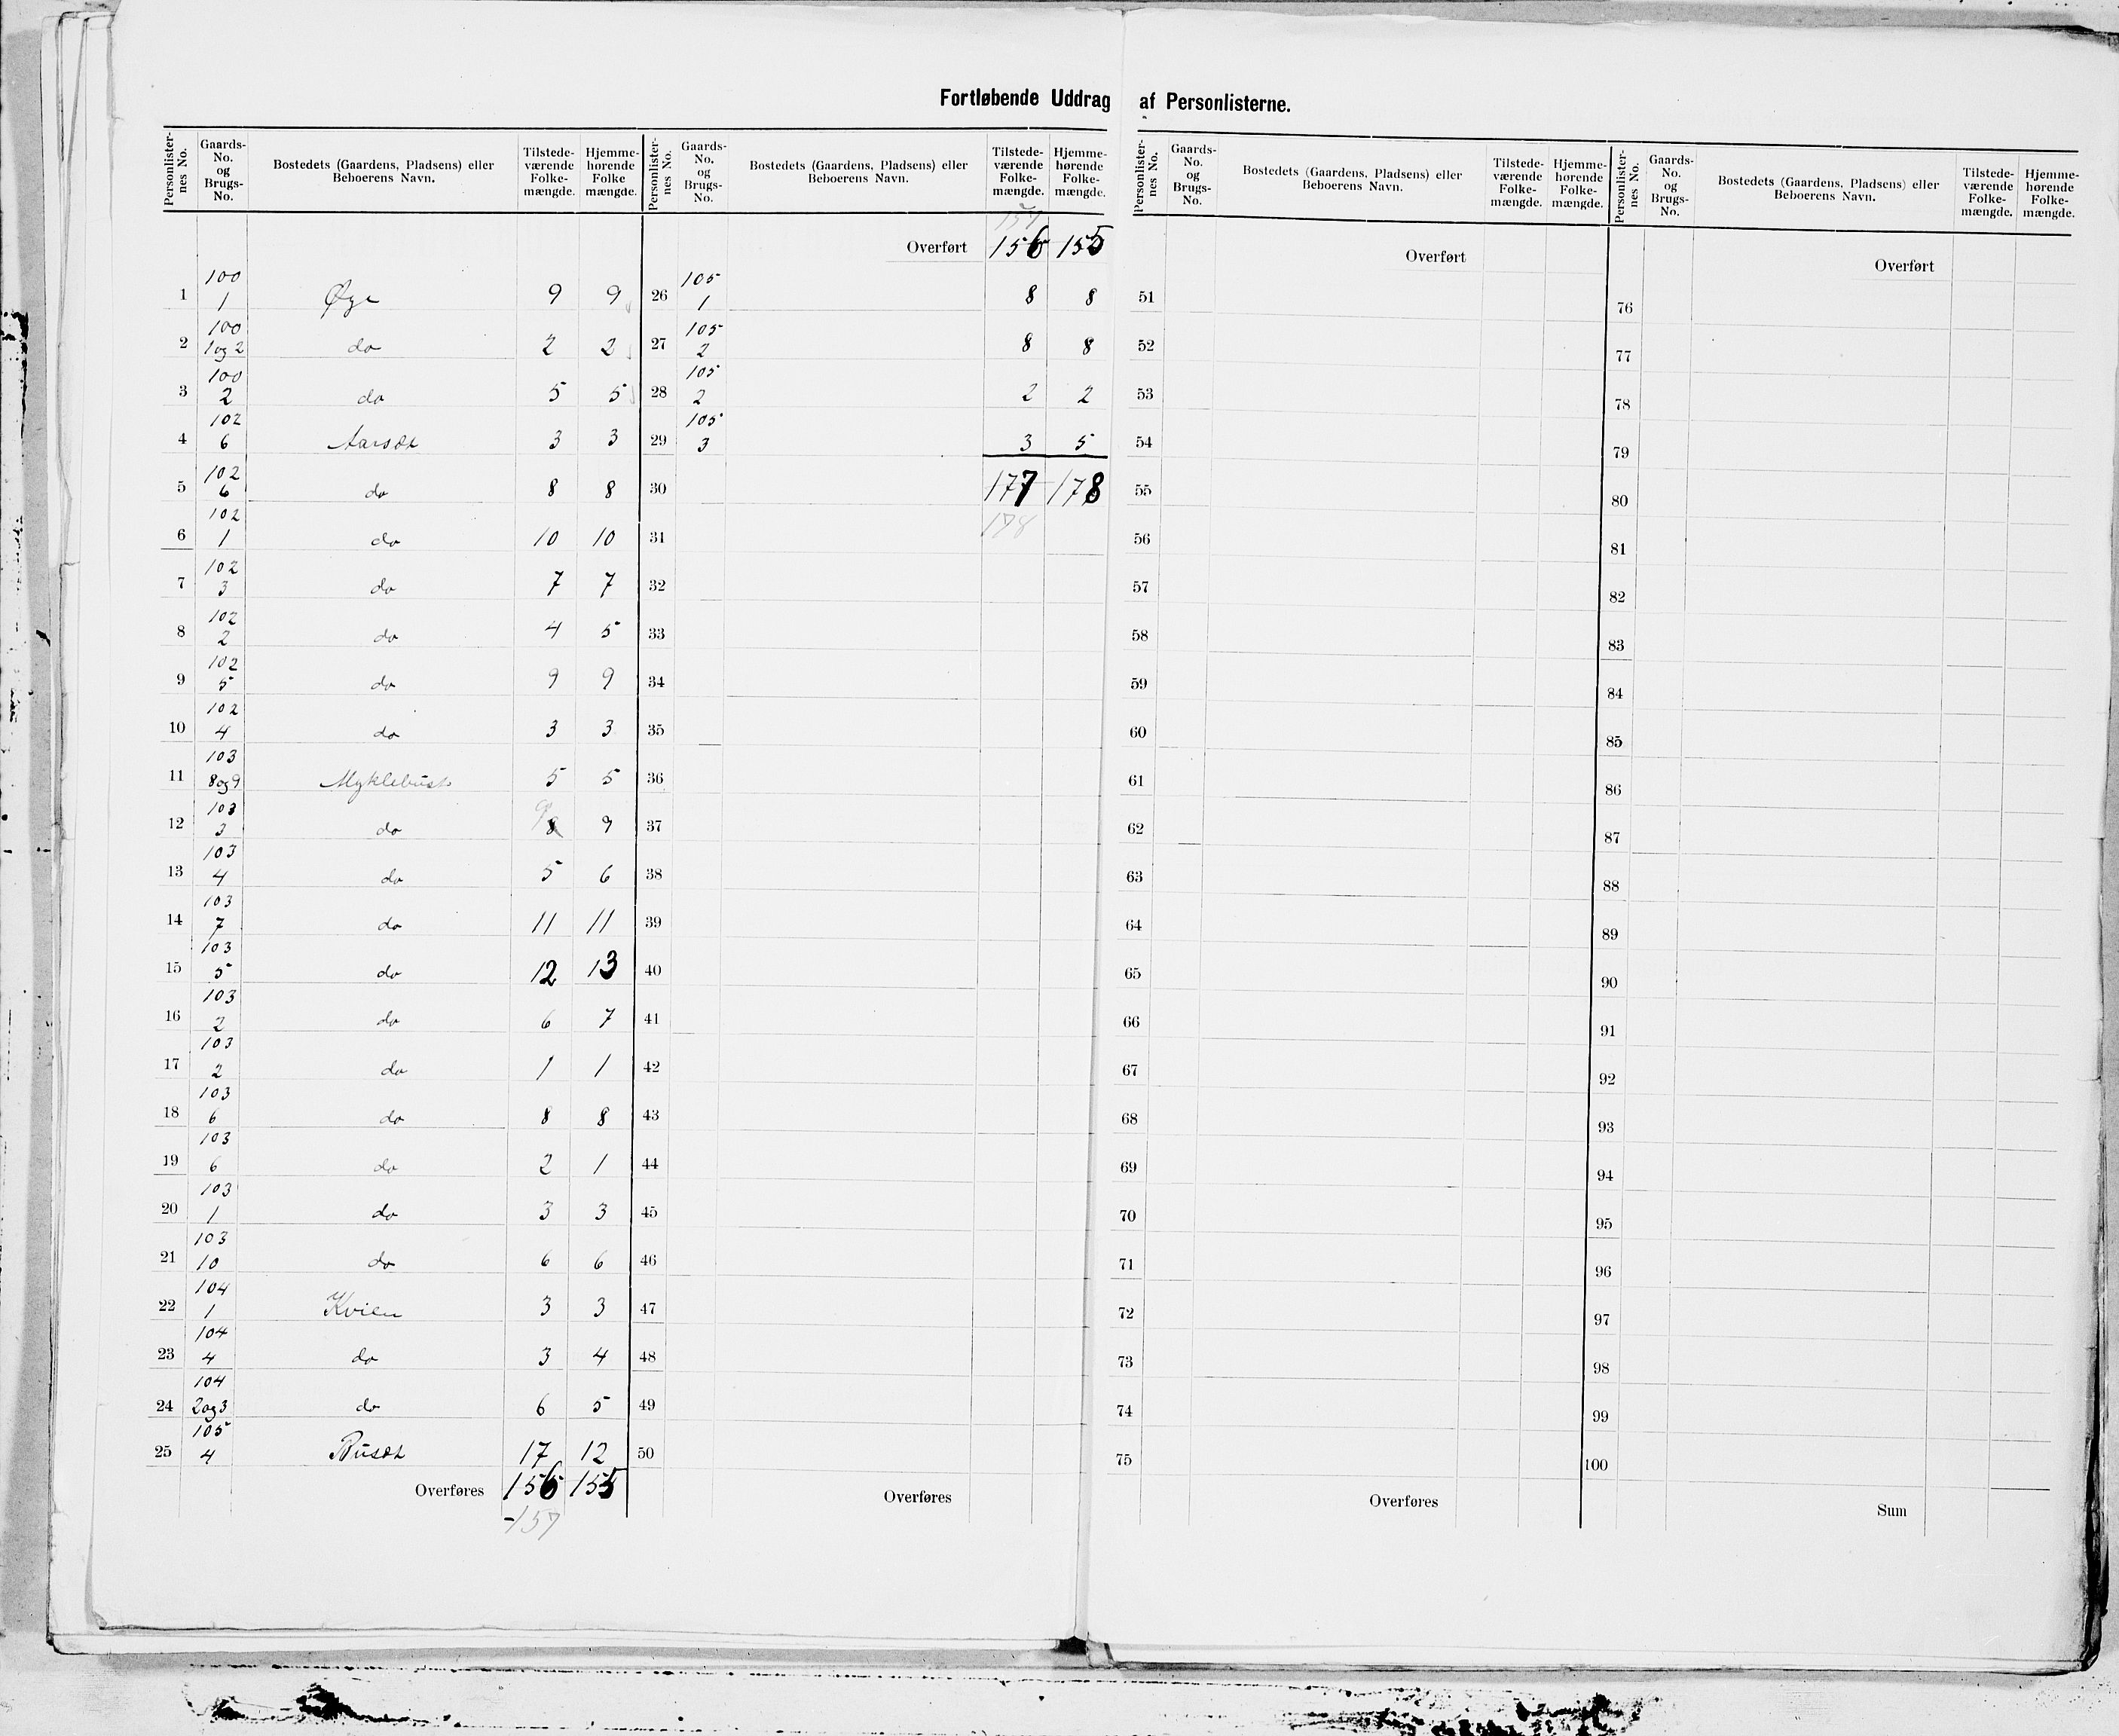 Fortløbende Uddrag af Personlisterne.
Personlister-nes No. Gaards-No. og Brugs-No. Bostedets (Gaardens, Pladsens) eller Beboerens Navn. Tilstede-værende Folke-mængde. Hjemme-hørende Folke mængde.
1 100 1 Øye 9 9
2 100 1 og 2 do 2 2
3 100 2 do 5 5
4 102 6 Aarsæt 3 3
5 102 6 do 8 8
6 102 1 do 10 10
7 102 3 do 7 7
8 102 2 do 4 5
9 102 5 do 9 9
10 102 4 do 3 3
11 103 8 og 9 Myklebust 5 5
12 103 3 do 8 9 9
13 103 4 do 5 6
14 103 7 do 11 11
15 103 5 do 12 13
16 103 2 do 6 7
17 103 2 do 1 1
18 103 6 do 8 8
19 103 6 do 2 1
20 103 1 do 3 3
21 103 10 do 6 6
22 104 1 Kvien 3 3
23 104 4 do 3 4
24 104 2 og 3 do 6 5
25 105 4 Rusæt 17 12
Overføres 156 155
157
Personlister-nes No. Gaards-No. og Brugs-No. Bostedets (Gaardens, Pladsens) eller Beboerens Navn. Tilstede-værende Folke-mængde. Hjemme-hørende Folke-mængde.
157
Overført 156 155
26 105 1 8 8
27 105 2 8 8
28 105 2 2 2
29 105 3 3 5
30 177 178
178
31
32
33
34
35
36
37
38
39
40
41
42
43
44
45
46
47
48
49
50
Overføres
Personlister-nes No. Gaards-No. og Brugs-No. Bostedets (Gaardens, Pladsens) eller Beboerens Navn. Tilstede-værende Folke-mængde. Hjemme-hørende Folke-mængde.
Overført
51
52
53
54
55
56
57
58
59
60
61
62
63
64
65
66
67
68
69
70
71
72
73
74
75
Overføres
Personlister-nes No. Gaards-No. og Brugs-No. Bostedets (Gaardens, Pladsens) eller Beboerens Navn. Tilstede-værende Folke-mængde. Hjemme-hørende Folke-mængde.
Overført
76
77
78
79
80
81
82
83
84
85
86
87
88
89
90
91
92
93
94
95
96
97
98
99
100
Sum